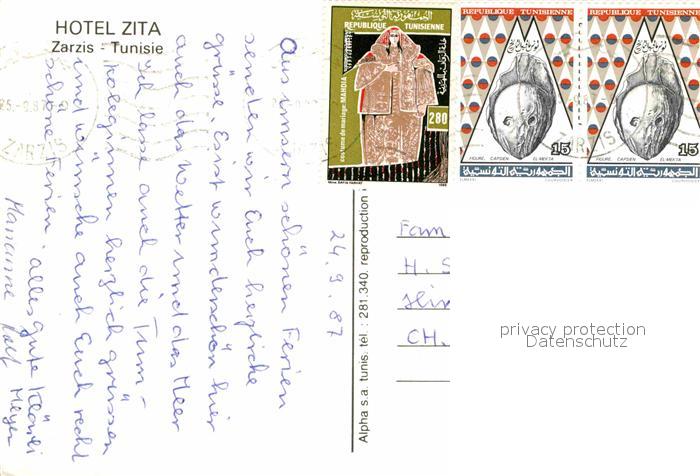 HOTEL ZITA
Zarzis - Tunisie
Aus unsern schönen Ferien
senden wir Euch herzliche
Grüsse. Es ist wunderschön hier
auch das Wetter und das Meer
Ich lasse auch die Turn-
kolleginnen herzlich grüssen
und wünsche auch Euch recht
schöne Ferien. alles gute
Marianne Ralf Meyer
24.9.87
Alpha s.a. tunis. tél.: 281.340. reproduction
REPUBLIQUE TUNISIENNE
costume de mariage: MAHDIA
280
1986
REPUBLIQUE TUNISIENNE
15
FIGURE, CAPSIEN EL-MEKTA
الجمهورية التونسية
REPUBLIQUE TUNISIENNE
15
FIGURE, CAPSIEN EL-MEKTA
الجمهورية التونسية
ZARZIS
Fam
H. S
CH.
privacy protection
Datenschutz